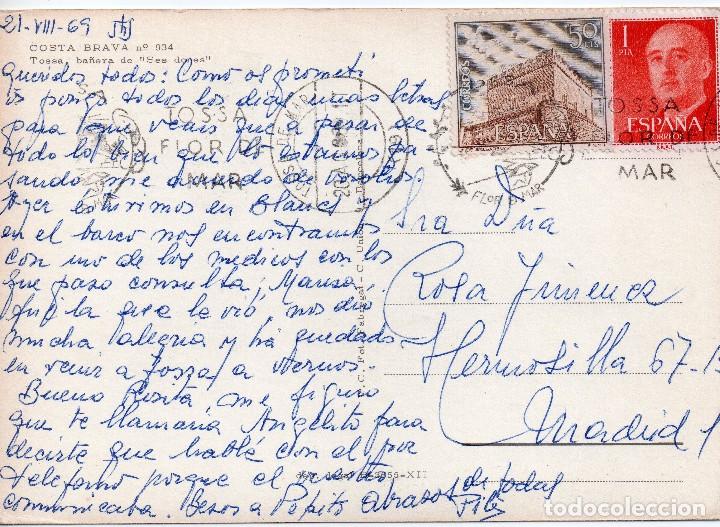 21-VIII-69
COSTA BRAVA nº 934
Tossa, bañera de "Ses dones"
Queridos todos: Como os prometí
os pongo todos los dias unas letras
para que veais que a pesar de
todo lo bien que lo estamos pa-
sando me acuerdo de vosotros
Ayer estuvimos en Blanes y
en el barco nos encontramos
con uno de los medicos con los
que paso consulta,
fué la que le vió, nos dió
mucha alegria y ha quedado
en venir a Tossa a vernos.
Bueno Rosita me figuro
que te llamaría Angelito para
decirte que hablé con el por
telefono porque el
comunicaba. Besos a Pepito abrazos de todas
Pili
TOSSA
FLOR DE
MAR
50 CTS
CORREOS
ESPAÑA
1
PTA
ESPAÑA
CORREOS
TOSSA
FLOR
MAR
FLOR DE MAR
Sra Dña
Rosa Jimenez
Hermosilla 67-
Madrid 1
todocoleccion.net